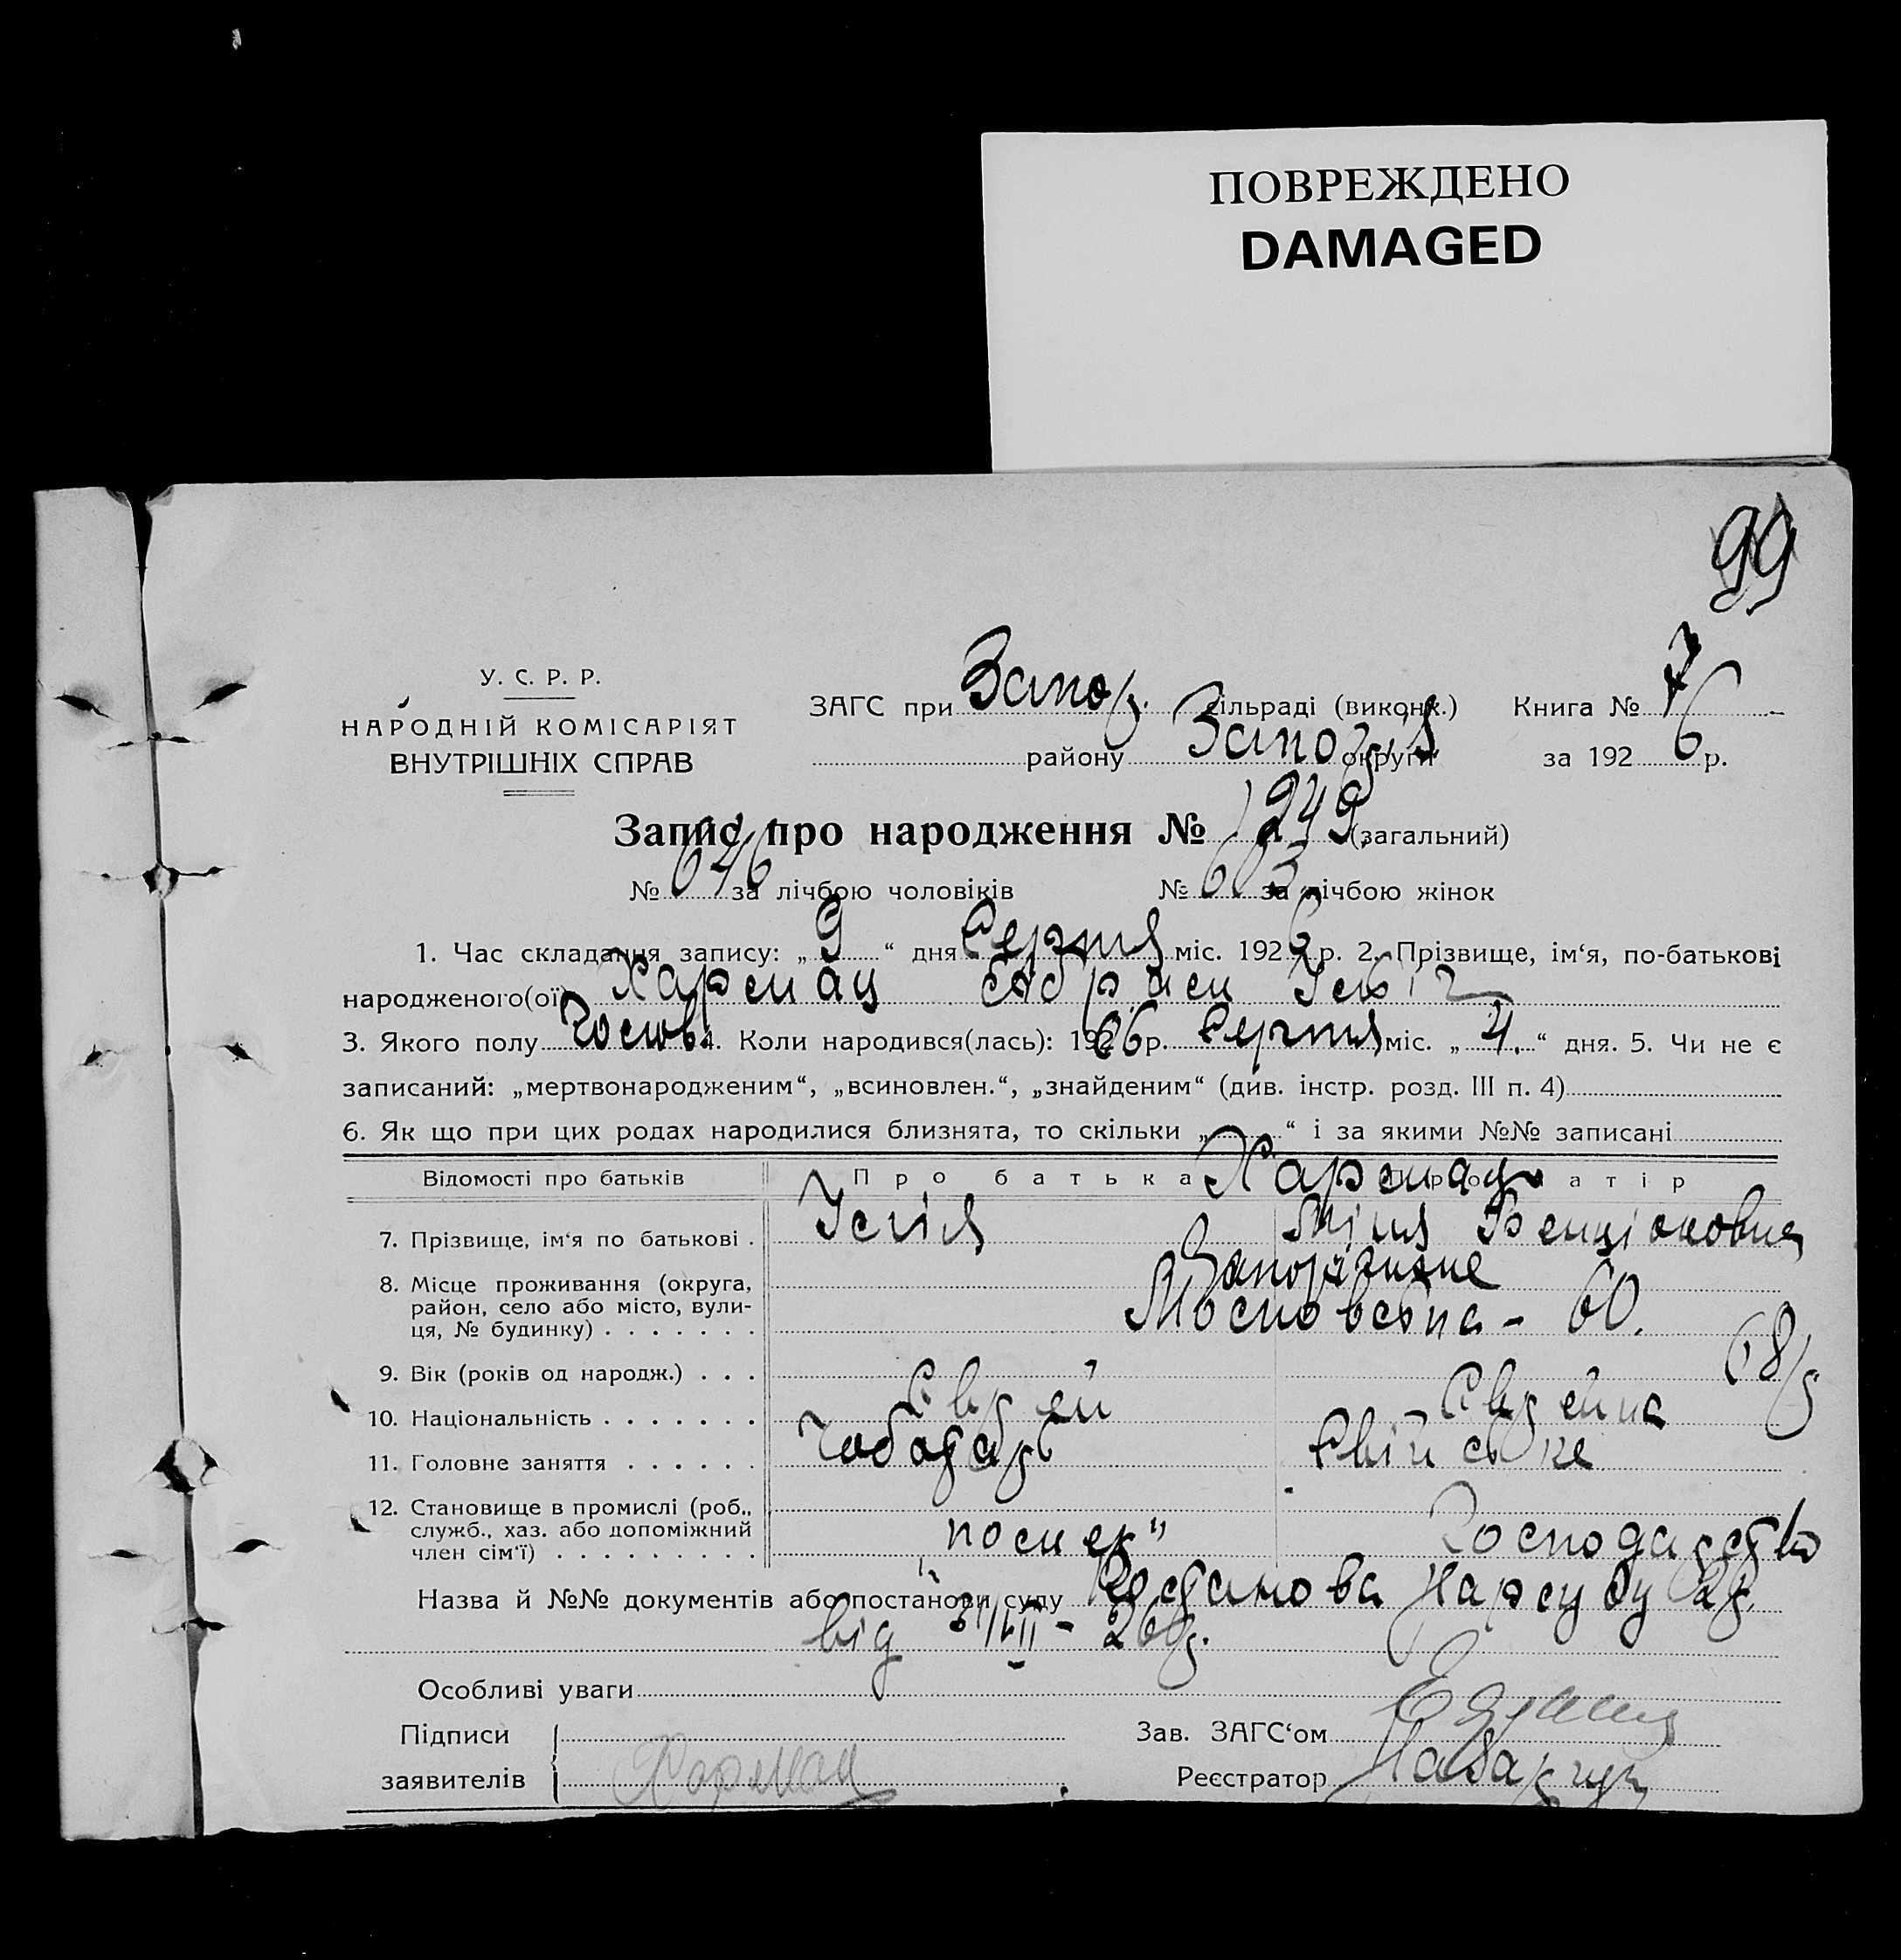 ПОВРЕЖДЕНО
DAMAGED
99
У. С. Р. Р.
НАРОДНІЙ КОМІСАРІЯТ
ВНУТРІШНІХ СПРАВ
ЗАГС при Запор. сільраді (виконк.) Книга № 7
району Запоріз округи за 192 6 р.
Запис про народження № 1249 (загальний)
№ 646 за лічбою чоловіків № 603 за лічбою жінок
1. Час складання запису: „ 9 “ дня Серпня міс. 192 6 р. 2. Прізвище, ім‘я, по-батькові
народженого(ої) Хармац
3. Якого полу Чолов. 4. Коли народився(лась): 1926 р. Серпня міс. „ 4. “ дня. 5. Чи не є
записаний: „мертвонародженим“, „всиновлен.“, „знайденим“ (див. інстр. розд. III п. 4)
6. Як що при цих родах народилися близнята, то скільки „ “ і за якими №№ записані
Відомості про батьків Про батька Хармац Про матір
7. Прізвище, ім‘я по батькові . Бенціоновна
8. Місце проживання (округа, Запоріжжє
район, село або місто, вули- Московська - 60.
ця, № будинку) . . . . . . .
68/5
9. Вік (років од народж.) . . .
10. Національність . . . . . . . Єврей Єврейка
11. Головне заняття . . . . . . Чоботарь Свійське
12. Становище в промислі (роб., Господарство
служб., хаз. або допоміжний
член сім‘ї) . . . . . . . . .
Назва й №№ документів або постанови суду Постанова Нарсуду 2 р.
від 26 р.
Особливі уваги
Підписи Зав. ЗАГС‘ом
заявителів Хармац Реєстратор